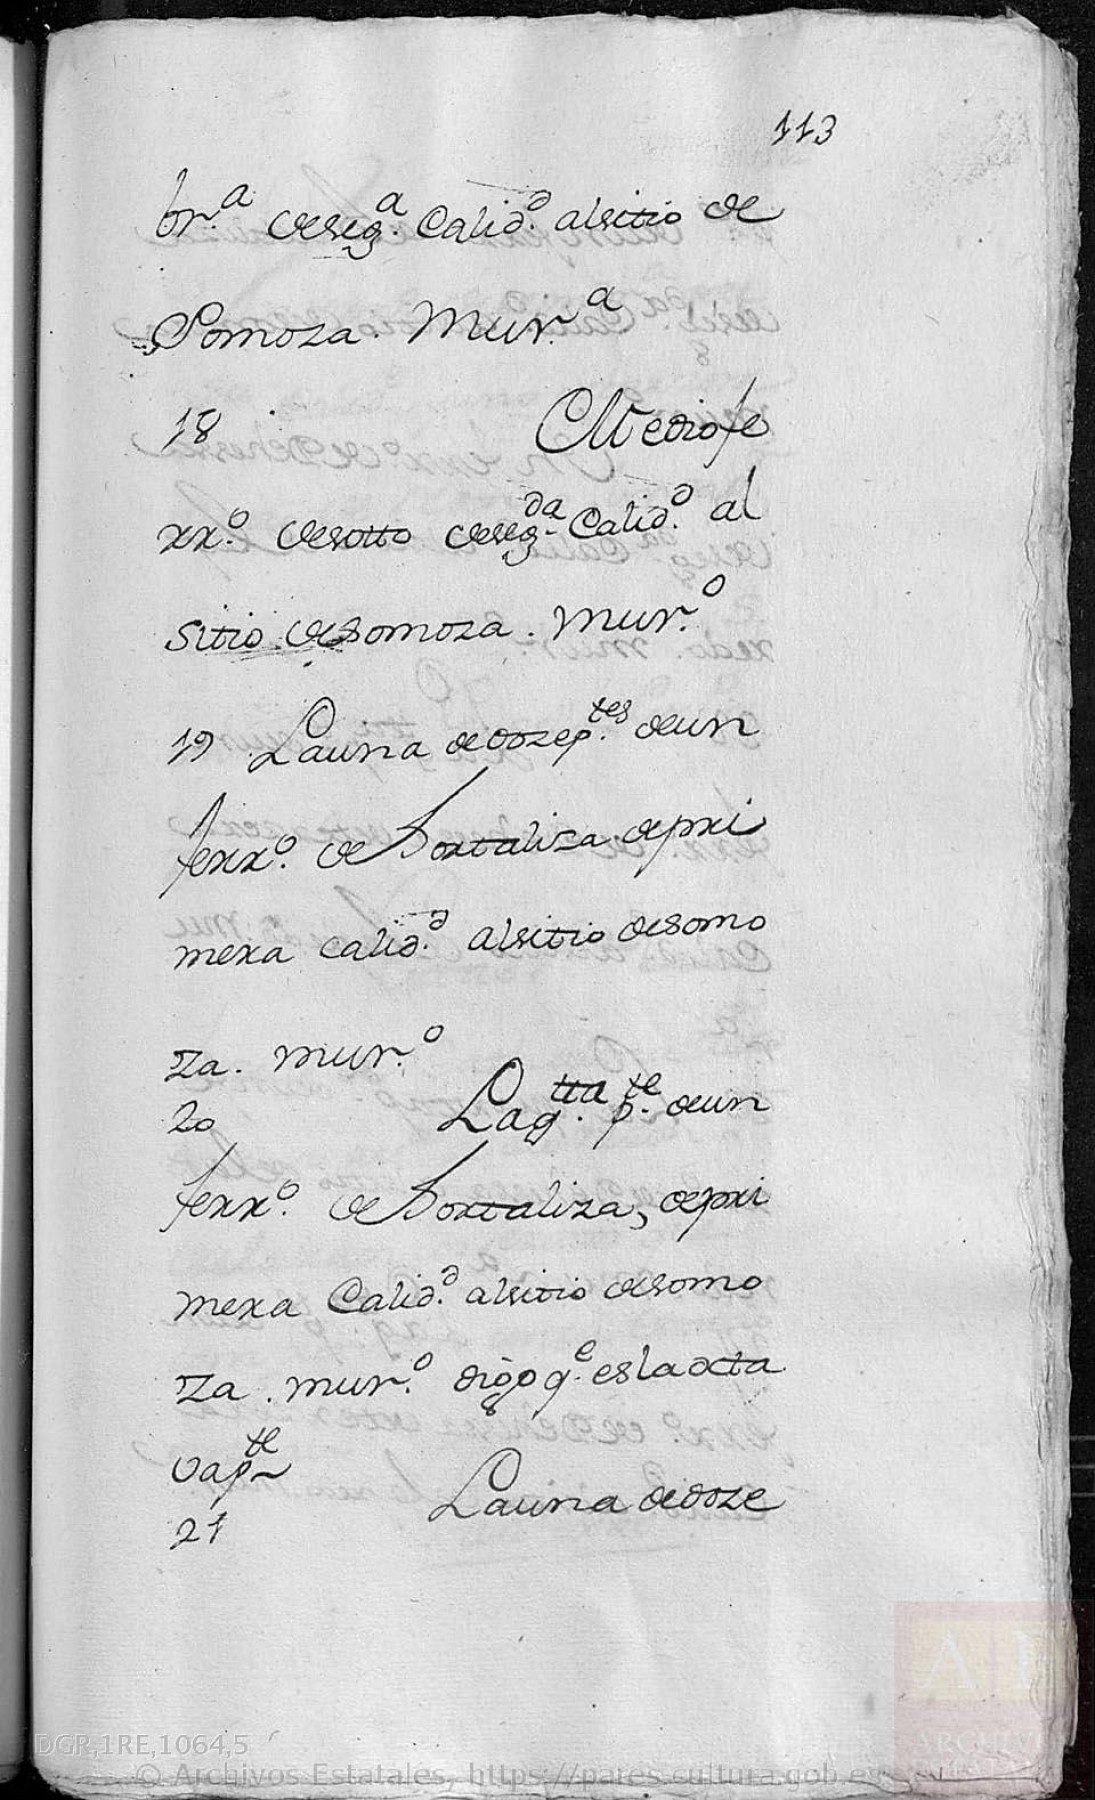 113
br.ª deseg.ª Calid.d alsitio de
Somoza. Mur.ª
18 Mediofe
rr.º desotto deseg.da Calid.d al
sitio deSomoza. Mur.º
19 Launa dedozep.tes deun
ferr.º de hortaliza depri
mera calid.d alsitio desomo
za. mur.º
20 Laq.tta p.te deun
ferr.º de hortaliza, depri
mera Calid.d alsitio desomo
za. mur.º digo q.e eslaocta
vap.te
21 Launa dedoze
DGR,1RE,1064,5
© Archivos Estatales, https://pares.cultura.gob.es